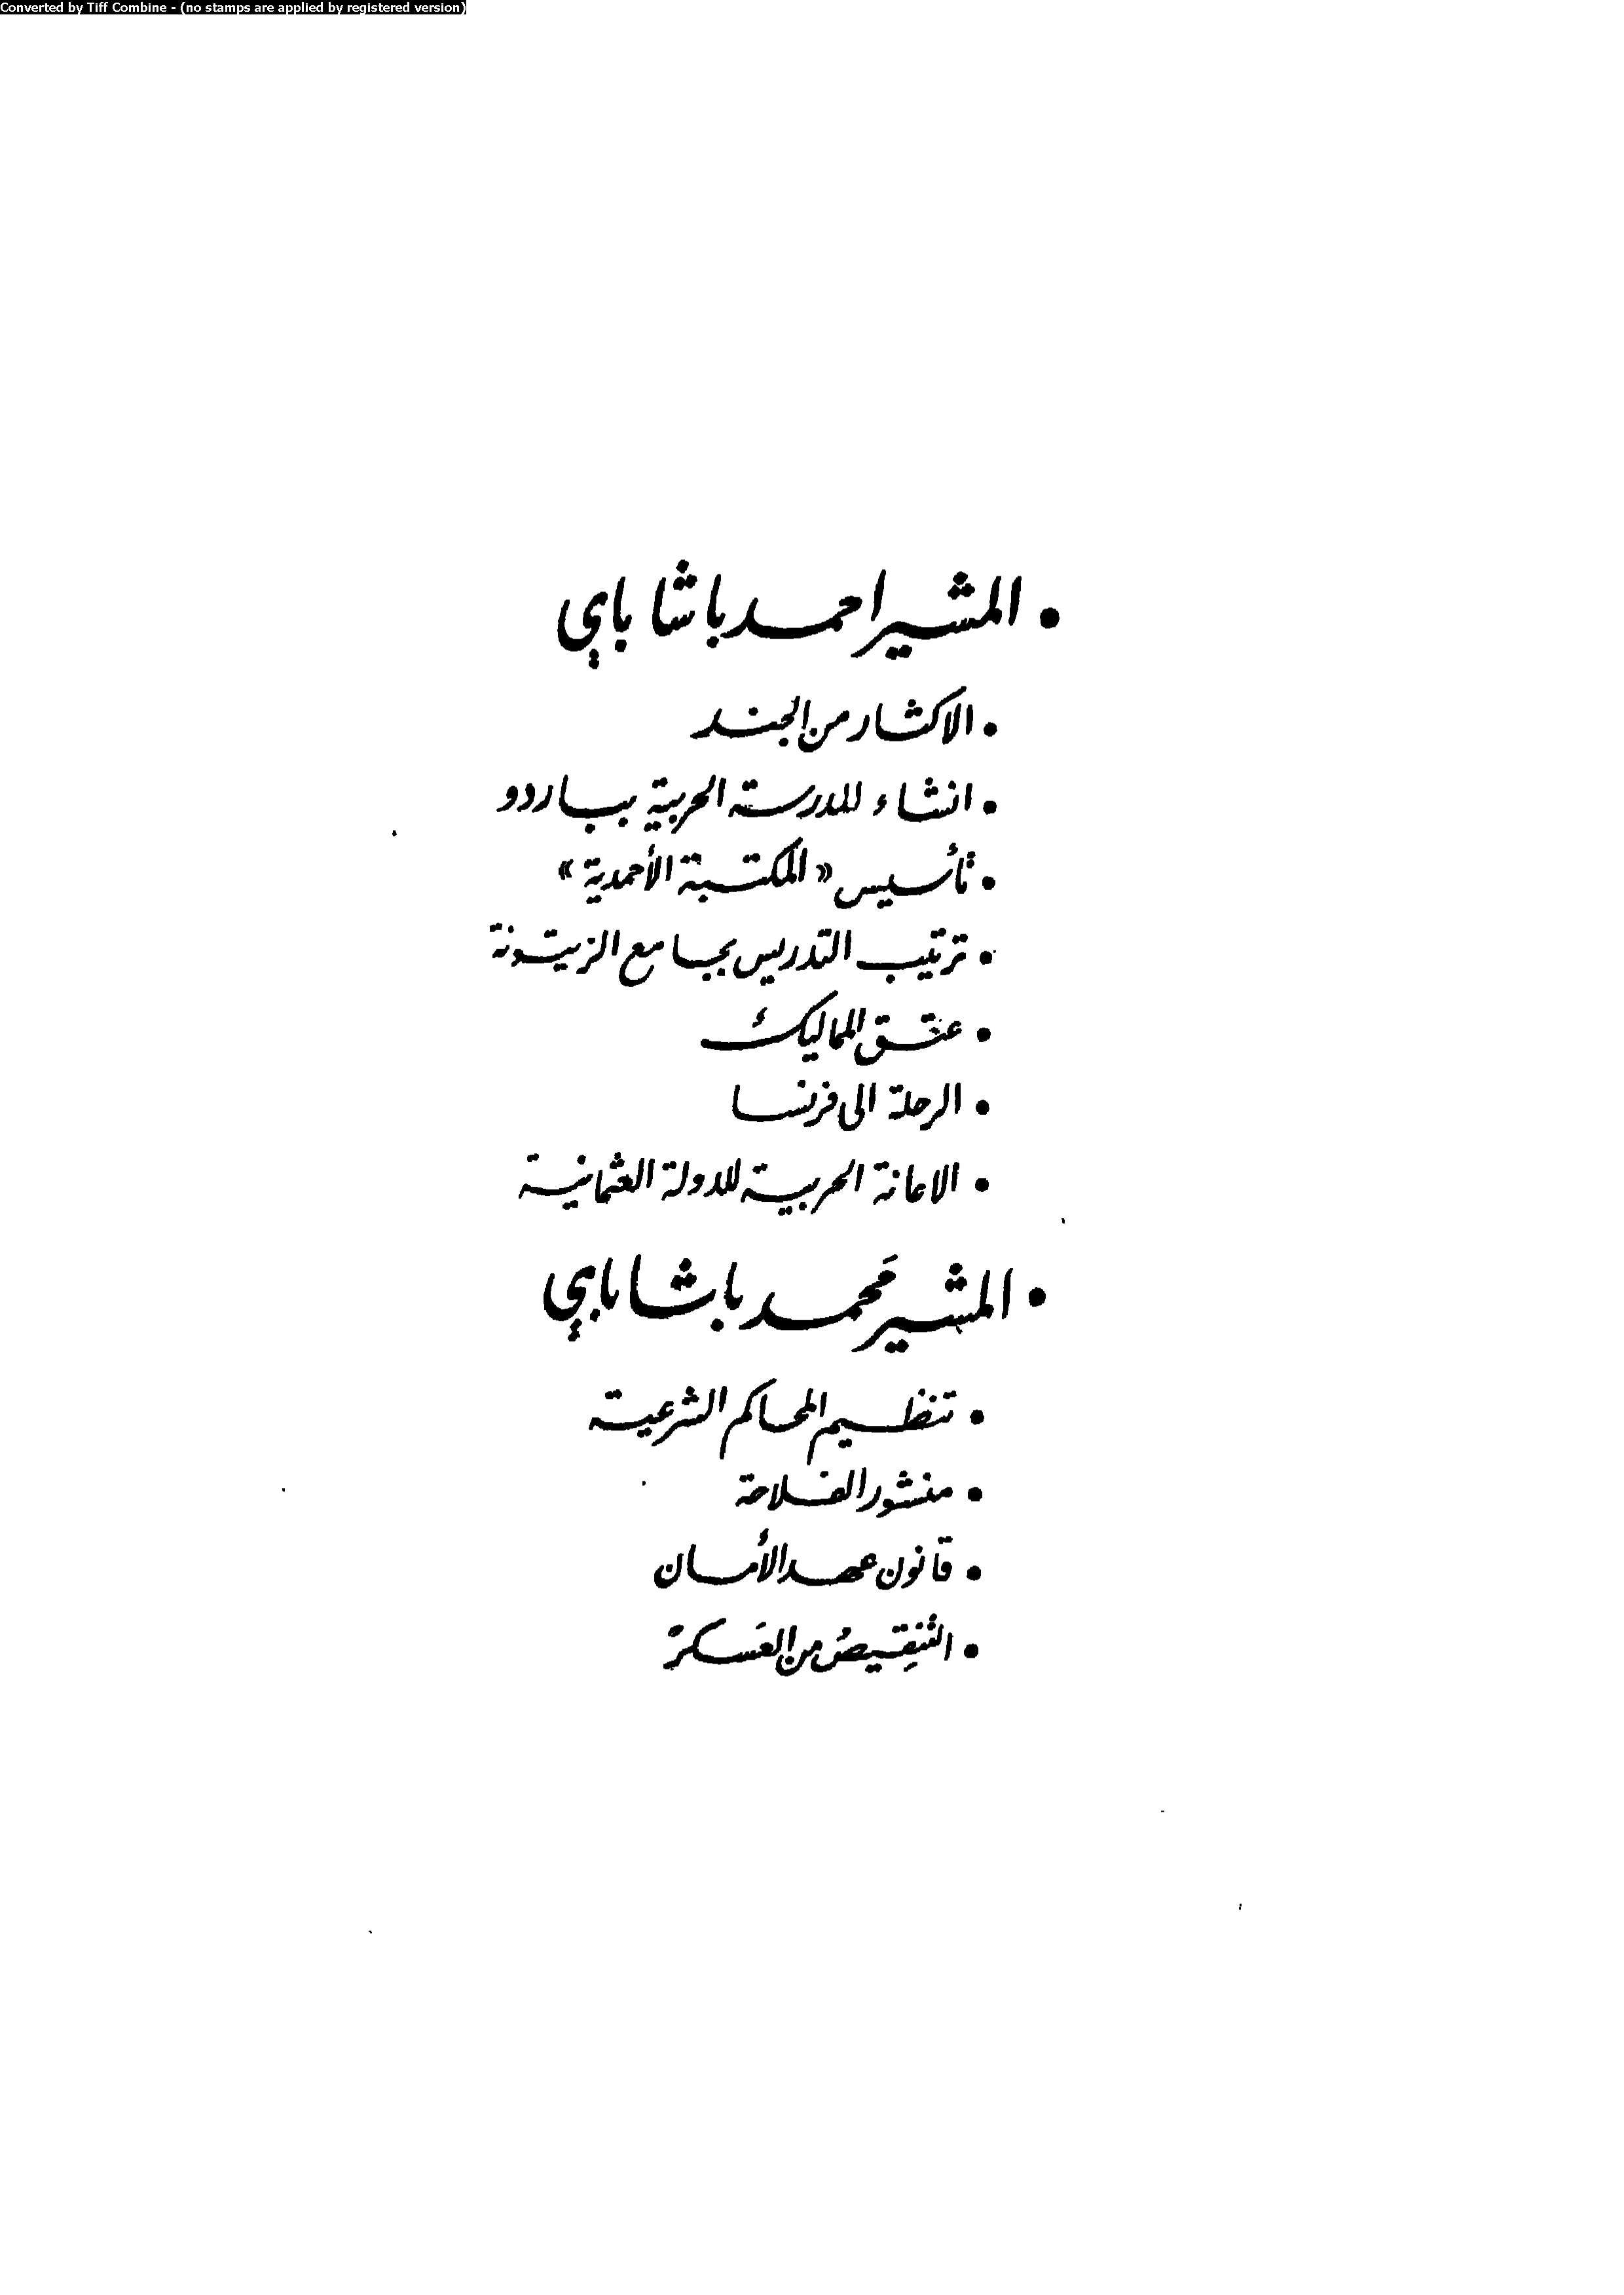 Converted by Tiff Combine - (no stamps are applied by registered version)
• المشير احمد باشا باي
• الاكثار من الجند
• انشاء المدرسة الحربية بباردو
• تأسيس « المكتبة الأحمدية »
• ترتيب التدريس بجامع الزيتونة
• عتق المماليك
• الرحلة الى فرنسا
• الاعانة الحربية للدولة العثمانية
• المشير مَحمد باشا باي
• تنظيم المحاكم الشرعية
• منشور الفلاحة
• قانون عهد الأمان
• التنقيص من العسكر